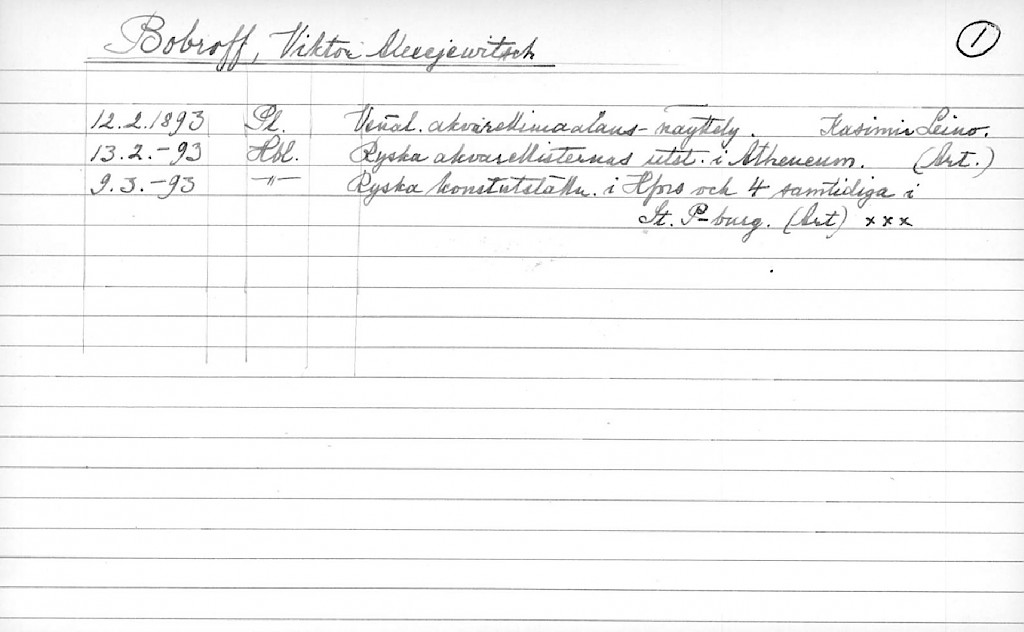 Bobroff, Viktor Alexejewitsch
1
12.2.1893 Pl. Venäl. akvarellimaalaus-näyttely. Kasimir Leino.
13.2.-93 Hbl. Ryska akvarellisternas utst. i Atheneum. (Art.)
9.3.-93 -"- Ryska konstutställn. i Hfors och 4 samtidiga i
St. P-burg. (Art) xxx